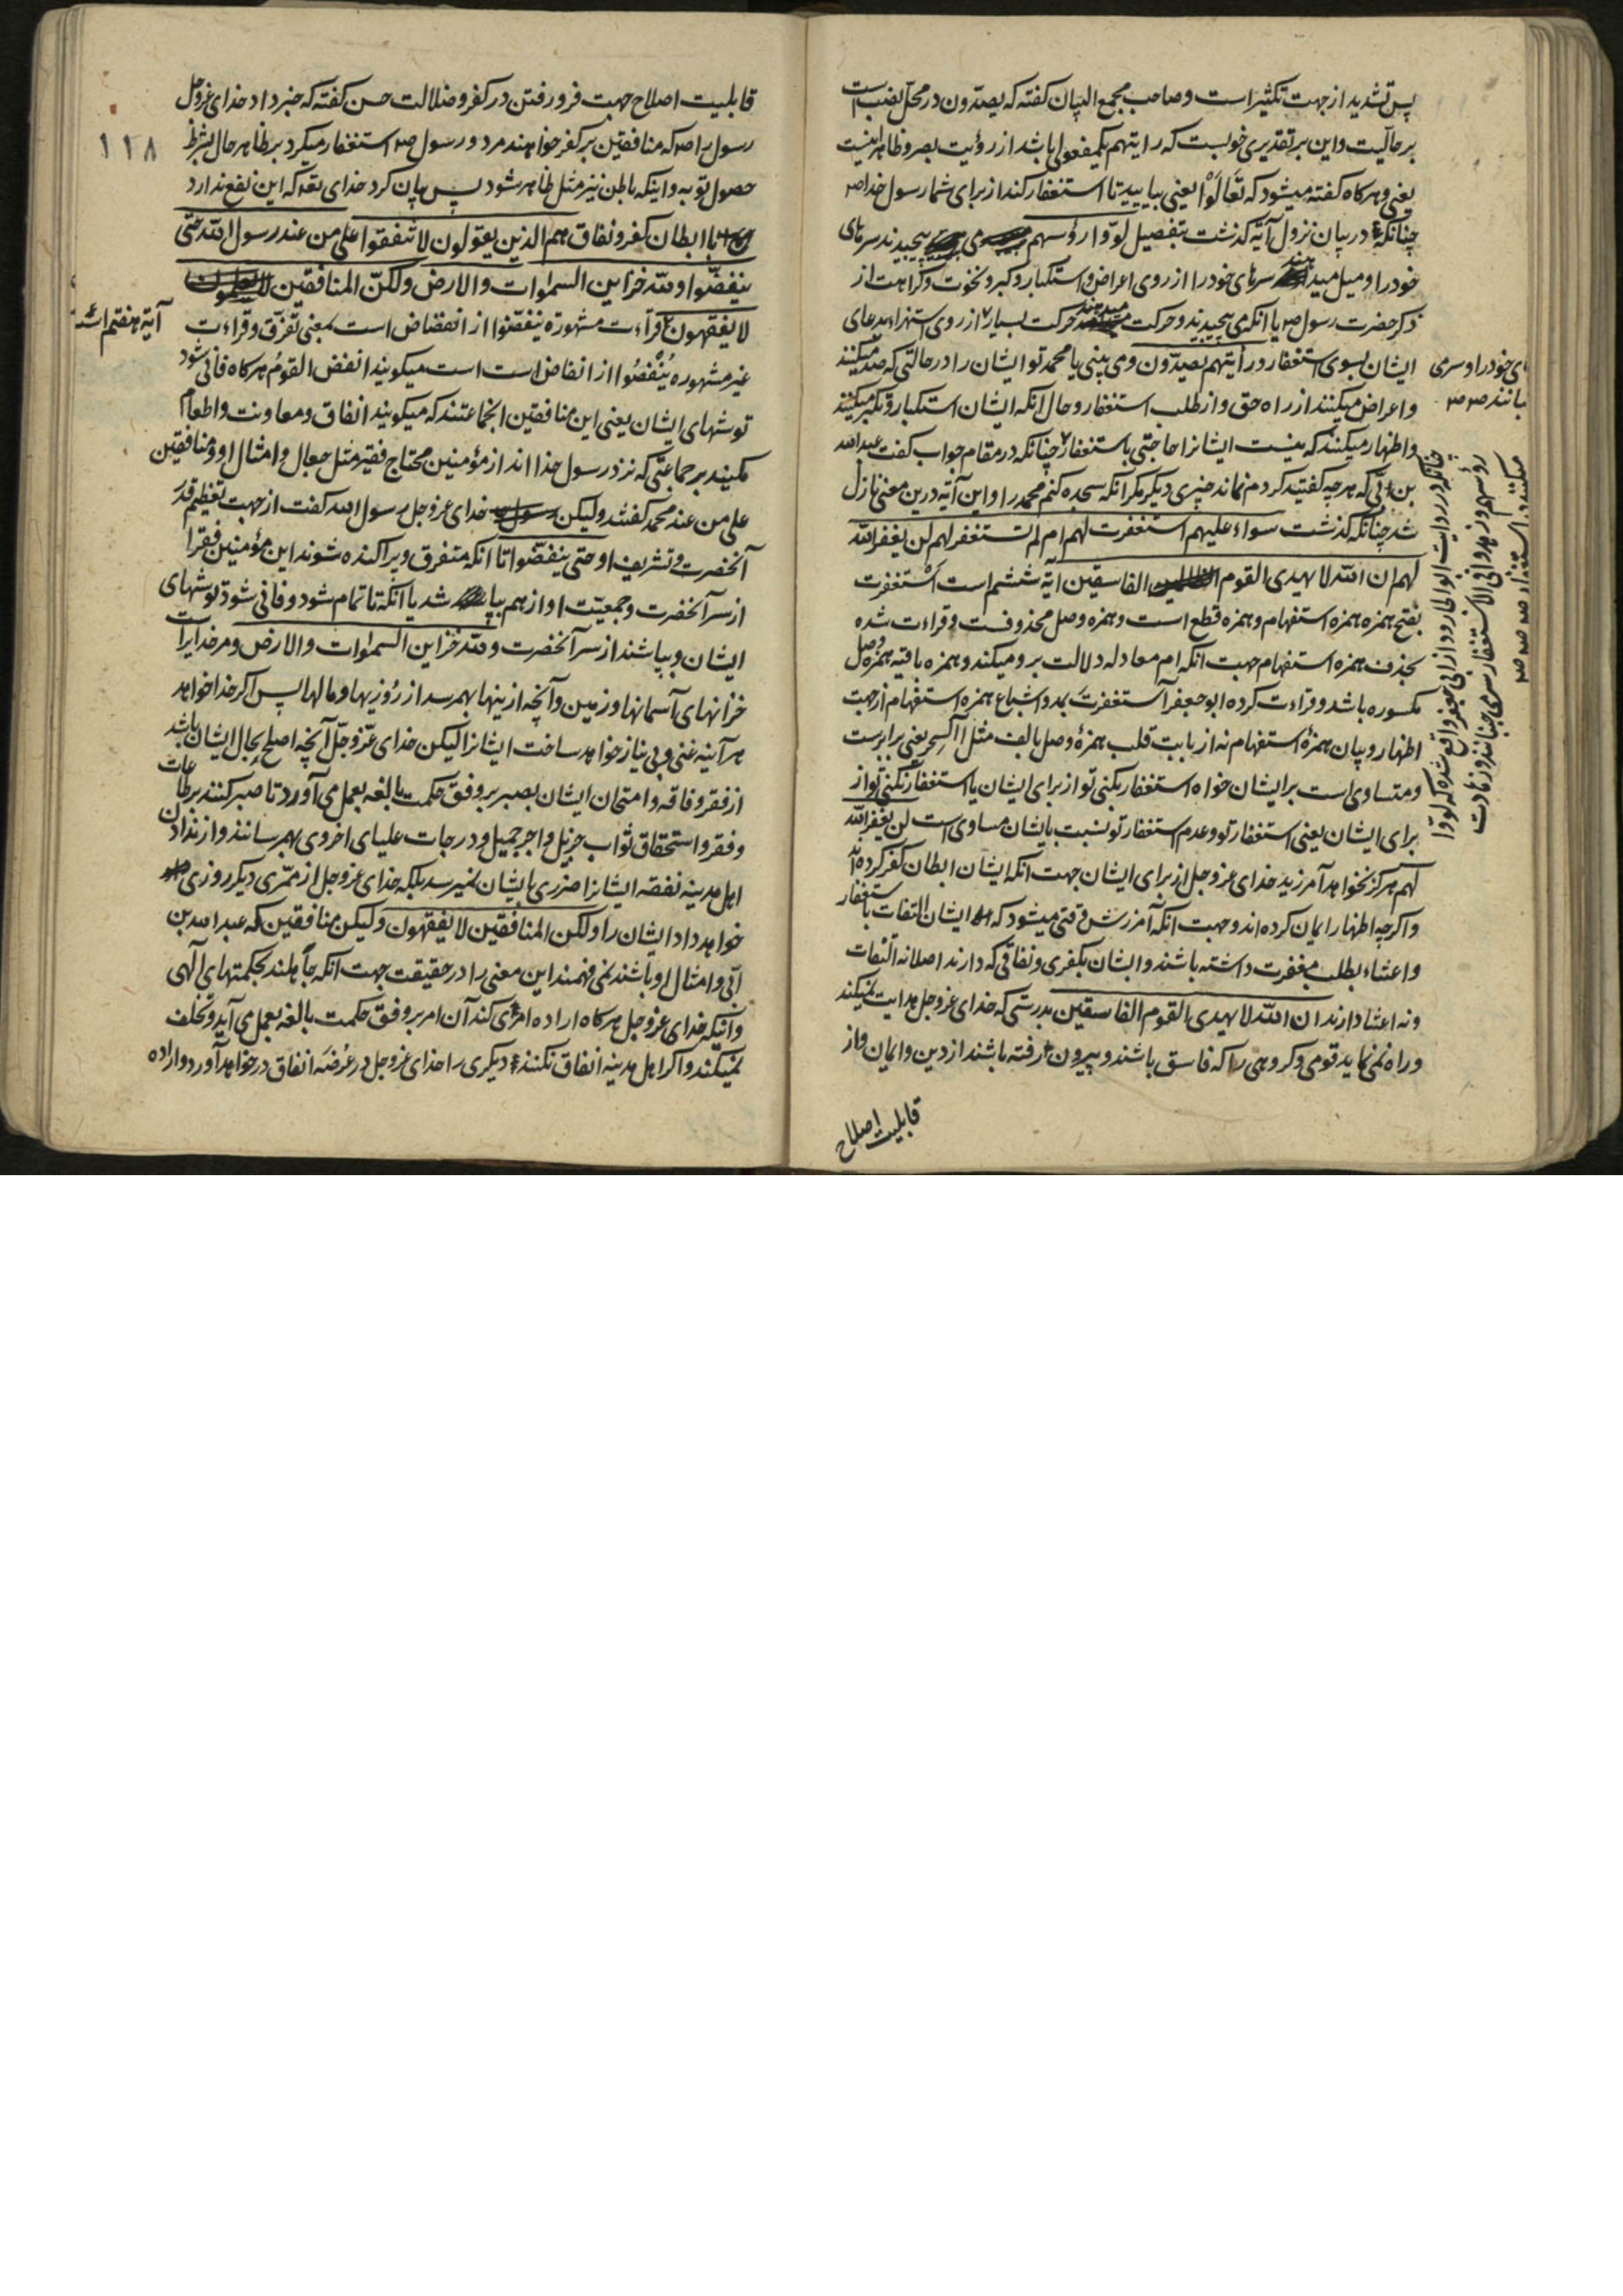 پس تشدید از جهت تکثیر است و صاحب مجمع البیان گفته که یصدّون در محلّ نصب است
بر حالیت و این بر تقدیری خوبست که رایتهم یکمفعولی باشد از رؤیت بصر و ظاهر اینست
یعنی و هرگاه گفته میشود که تَعَالَوْا یعنی بیایید تا استغفار کند از برای شما رسول خدا ص
چنانکه در بیان نزول آیه گذشت بتفصیل لوّوا رؤسهم می پیچیدند سرهای
خود را و میل میدهند سرهای خود را از روی اعراض و استکبار و کبر و نخوت و کراهت از
ذکر حضرت رسول ص یا آنکه می پیچیدند و حرکت میدهند حرکت بسیار از روی استهزاء بدعای
ایشان بسوی استغفار و رأیتهم یصدّون و می بینی یا محمد تو ایشان را در حالتی که صد میکنند
و اعراض میکنند از راه حق و از طلب استغفار و حال آنکه ایشان استکبار و تکبر میکنند
و اظهار میکنند که نیست ایشانرا حاجتی باستغفار چنانکه در مقام جواب گفت عبدالله
بن ابّی که هرچه گفتید کردم نماند چیزی دیگر مگر آنکه سجده کنم محمد را و این آیه درین معنی نازل
شد چنانکه گذشت سواء علیهم استغفرت لهم ام لم تستغفر لهم لن یغفر الله
لهم ان الله لا یهدی القوم الفاسقین آیهٔ ششم است أَسْتَغفرت
بفتح همزه همزه استفهام و همزه قطع است و همزه وصل محذوفست و قراءت شده
بحذف همزه استفهام جهت آنکه ام معادله دلالت برو میکند و همزه باقیه همزه وصل
مکسوره باشد و قراءت کرده ابو جعفر آستغفرتَ بمد و اشباع همزه استفهام از جهت
اظهار و بیان همزهٔ استفهام نه از بابت قلب همزهٔ وصل بالف مثل آلسحر یعنی برابرست
و متساوی است بر ایشان خواه استغفار بکنی تو از برای ایشان یا استغفار نکنی تو از
برای ایشان یعنی استغفار تو و عدم استغفار تو نسبت بایشان مساوی است لن یغفر الله
لهم هرگز نخواهد آمرزید خدای عز وجل از برای ایشان جهت آنکه ایشان ابطان کفر کرده اند
و اگرچه اظهار ایمان کرده اند و جهت آنکه آمرزش وقتی میشود که ایشان التفات باستغفار
و اعتناء بطلب مغفرت داشته باشند و ایشان بکفری و نفاقی که دارند اصلا نه التفات
و نه اعتنا دارند ان الله لا یهدی القوم الفاسقین بدرستی که خدای عز وجل هدایت نمیکند
و راه نمی نماید قومی و گروهی را که فاسق باشند و بیرون رفته باشند از دین و ایمان و از
قابلیت اصلاح
ای خود را و سری
چنانکه در روایت ابو الجارود از ابی جعفر واقع شده که لوّوا
۱۱۸
قابلیت اصلاح جهت فرو رفتن در کفر و ضلالت حسن گفته که خبر داد خدای عز وجل
رسول را ص که منافقین بر کفر خواهند مرد و رسول ص استغفار میکرد بر ظاهر حال بشرط
حصول توبه و اینکه باطن نیز مثل ظاهر شود پس بیان کرد خدای تع که این نفع ندارد
با ابطان کفر و نفاق هم الذین یقولون لا تنفقوا علی من عند رسول الله حتّی
ینفضّوا و لله خزاین السموات و الارض ولکنّ المنافقین
لا یفقهون قراءت مشهوره ینفضّوا از انفضاض است بمعنی تفرّق و قراءت
آیهٔ هفتم است
غیر مشهوره یُنْفِضُوا از انفاض است میگویند انفض القومُ هرگاه فانی شود
توشهای ایشان یعنی این منافقین انجماعتند که میگویند انفاق و معاونت و اطعام
مکنید بر جماعتی که نزد رسول خدا اند از مؤمنین محتاج فقیر مثل جعال و امثال او و منافقین
علی من عند محمد گفتند و لیکن خدای عز وجل رسول الله گفت از جهت تعظیم قدر
آنحضرت و تشریف او حتی ینفضّوا تا آنکه متفرق و پراکنده شوند این مؤمنین فقرا
از سر آنحضرت و جمعیّت او از هم بپاشد یا آنکه تا تمام شود و فانی شود توشهای
ایشان و بپاشند از سر آنحضرت و لله خزاین السموات و الارض و مر خدایراست
خزانهای آسمانها و زمین و آنچه از ینها بهم رسد از روزیها و مالها پس اگر خدا خواهد
هر آینه غنی و بی نیاز خواهد ساخت ایشانرا لیکن خدای عزّ وجلّ آنچه اصلح بحال ایشان باشد
از فقر و فاقه و امتحان ایشان بصبر بر وفق حکمت بالغه بعمل می آورد تا صبر کنند بر طاعات
و فقر و استحقاق ثواب جزیل و اجر جمیل و درجات علیای اخروی بهم رسانند و از ندادن
اهل مدینه نفقه ایشانرا ضرری بایشان نمیرسد بلکه خدای عز وجل از ممّری دیگر روزی
خواهد داد ایشان را ولکن المنافقین لا یفقهون و لیکن منافقین که عبدالله بن
ابّی و امثال او باشند نمی فهمند این معنی را در حقیقت جهت آنکه جاهلند بحکمتهای الهی
و آنکه خدای عز وجل هرگاه اراده امری کند آن امر بر وفق حکمت بالغه بعمل می آید و تخلف
نمیکند و اگر اهل مدینه انفاق نکنند دیگری را خدای عز وجل در عُرضَه انفاق در خواهد آورد و اراده